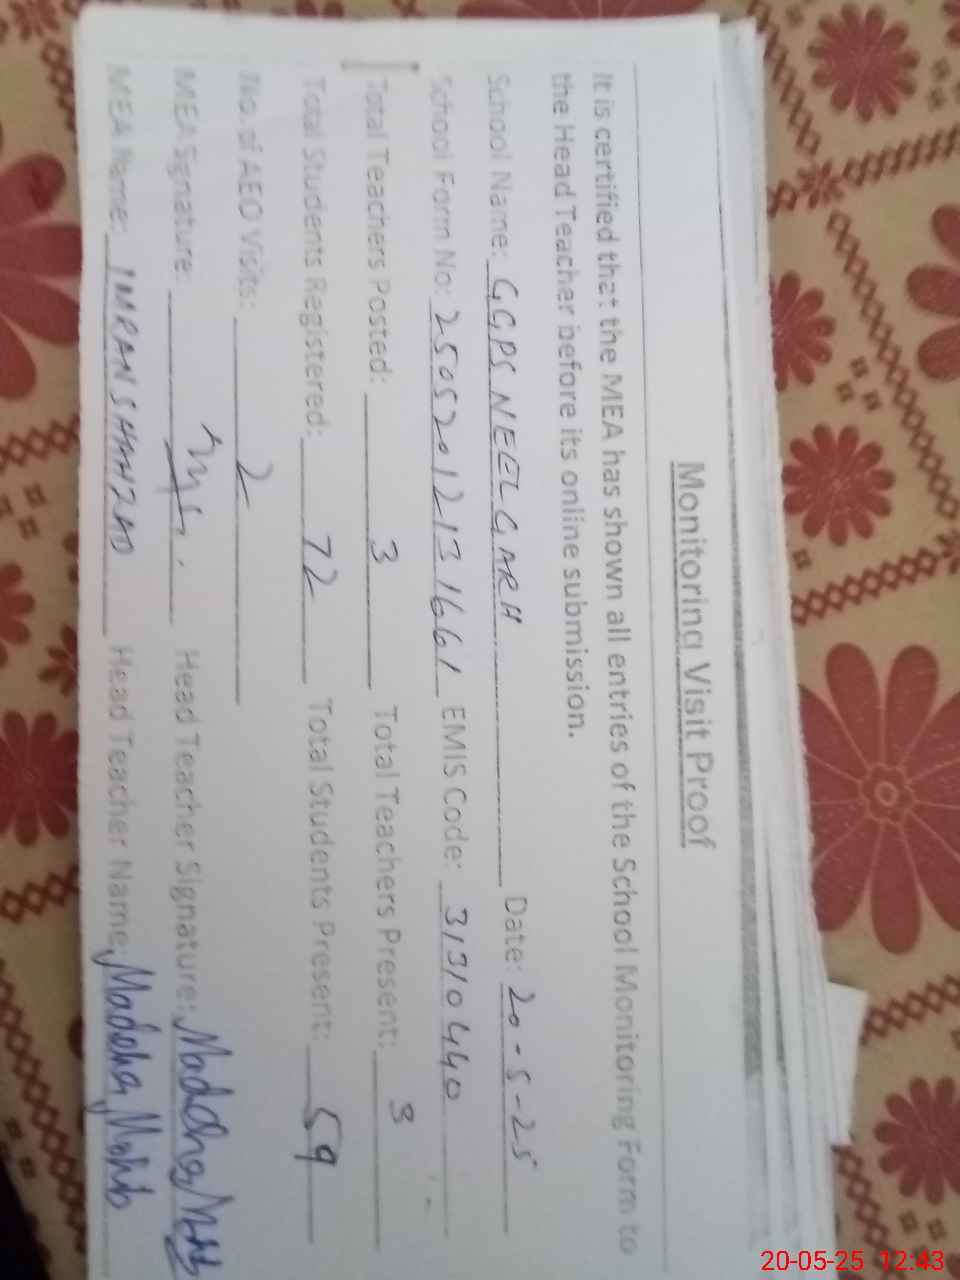 Monitoring Visit Proof
It is certified that the MEA has shown all entries of the School Monitoring Form to
the Head Teacher before its online submission.
School Name: GGPS NEELGARH Date: 20-5-25
School Form No: 2505201213 1661 EMIS Code: 31310440
Total Teachers Posted: 3 Total Teachers Present: 3
Total Students Registered: 72 Total Students Present: 59
No. of AEO Visits: 2
MEA Signature: Head Teacher Signature: Madeha
MEA Name: IMRAN SHAHZAD Head Teacher Name: Madeha
20-05-25 12:43